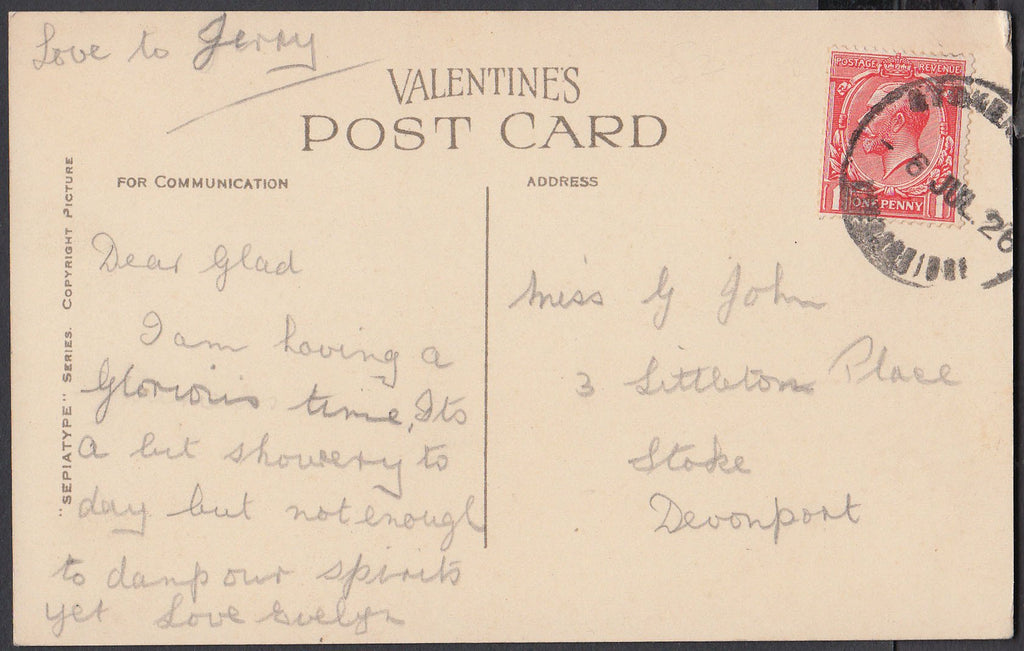 Love to Jerry
VALENTINE'S
POST CARD
FOR COMMUNICATION
ADDRESS
"SEPIATYPE" SERIES. COPYRIGHT PICTURE
POSTAGE REVENUE
1 ONE PENNY 1
8 JUL 26
Dear Glad
I am having a
Glorious time, Its
a bit showery to
day but not enough
to damp our spirits
yet Love Evelyn
Miss G John
3 Littleton Place
Stoke
Devonport